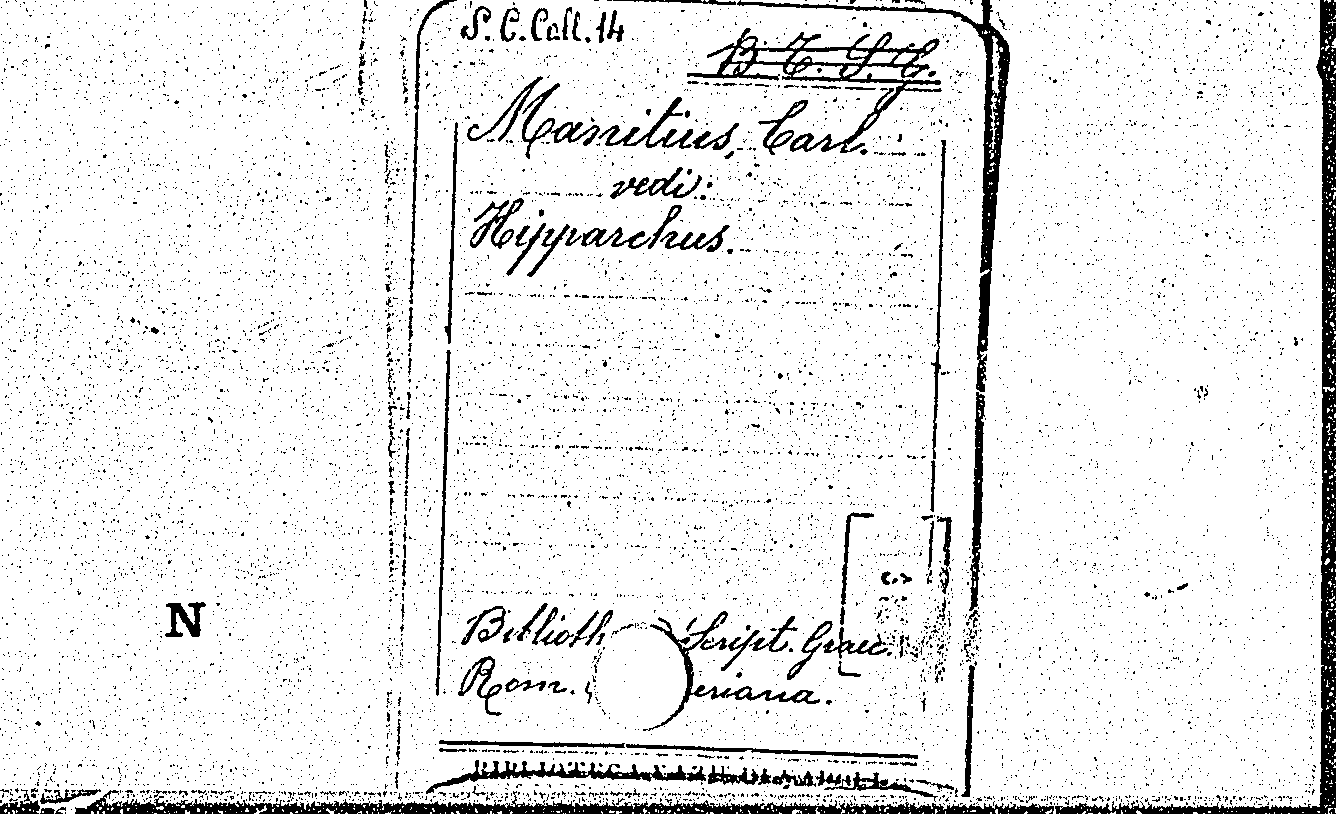 S. C. Coll. 14
B. T. S. T.
Manitius, Carl.
vedi:
Hipparchus.
N
Biblioth Script. Graec.
Rom. eriana.